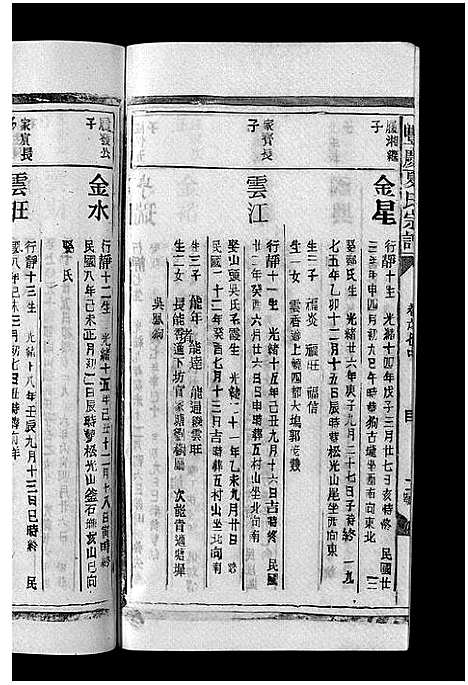 豐慶夏氏宗譜
履湘繼
子
金星
行靜十生 光緒十四年戊子三月廿七亥時終 民國廿
三年 申四月初九巳午時葬狗古墟坐西南向東北
娶鄭氏生 光緒廿六年庚子九月二十七日子時終 一九
七五年乙卯十二月十五日辰時葬松光山尾坐西向東
生三子 福炎 福旺 福信
生一女 雲香適上頓四都大塢郭
家賓長
子
雲江
行靜十一生 光緒十 年 九月十六日吉時終 民國
卅二年癸酉六月廿六日日申時葬五村山坐北向南
娶山頭吳氏 霞生 光緒二十一年乙未九月廿日 終
民國二十二年癸酉七月十三日吉時葬五村山坐北向南
生三子 能年 能達 能通繼雲旺
生二女 長能 適下坊官家塘劉樹 次能青適塘
吳
履發公
子
金水
行靜十二生 光緒十五年己丑十二月十八日寅時終
民國八年己未正月初二日辰時葬松光山 石 亥山巳向
娶 氏
家賓長
子
雲旺
行靜十三生 光緒十八年壬辰九月十三日巳時終 民
國八年己未三月初七日丑時